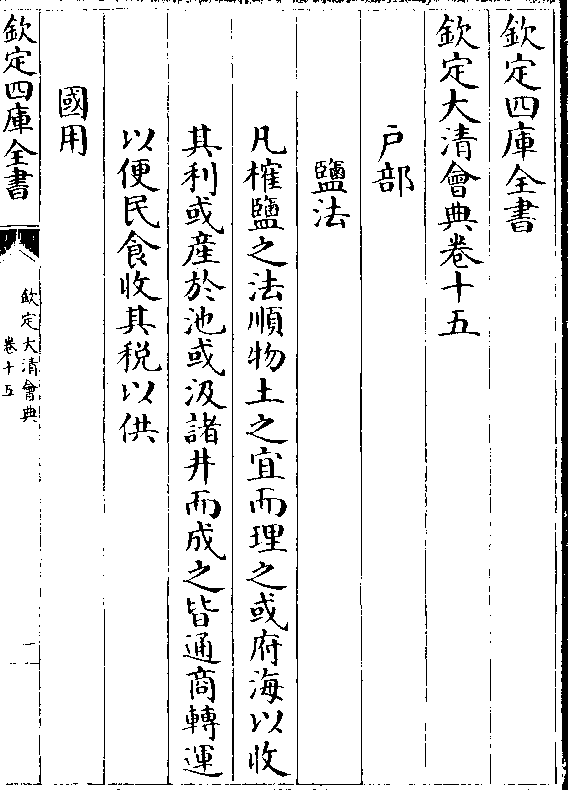 欽定四庫全書
欽定大清會典卷十五
戶部
鹽法
凡榷鹽之法順物土之宜而理之或府海以收
其利或産於池或汲諸井而成之皆通商轉運
以便民食收其税以供
國用
欽定四庫全書
欽定大清會典
卷十五
一